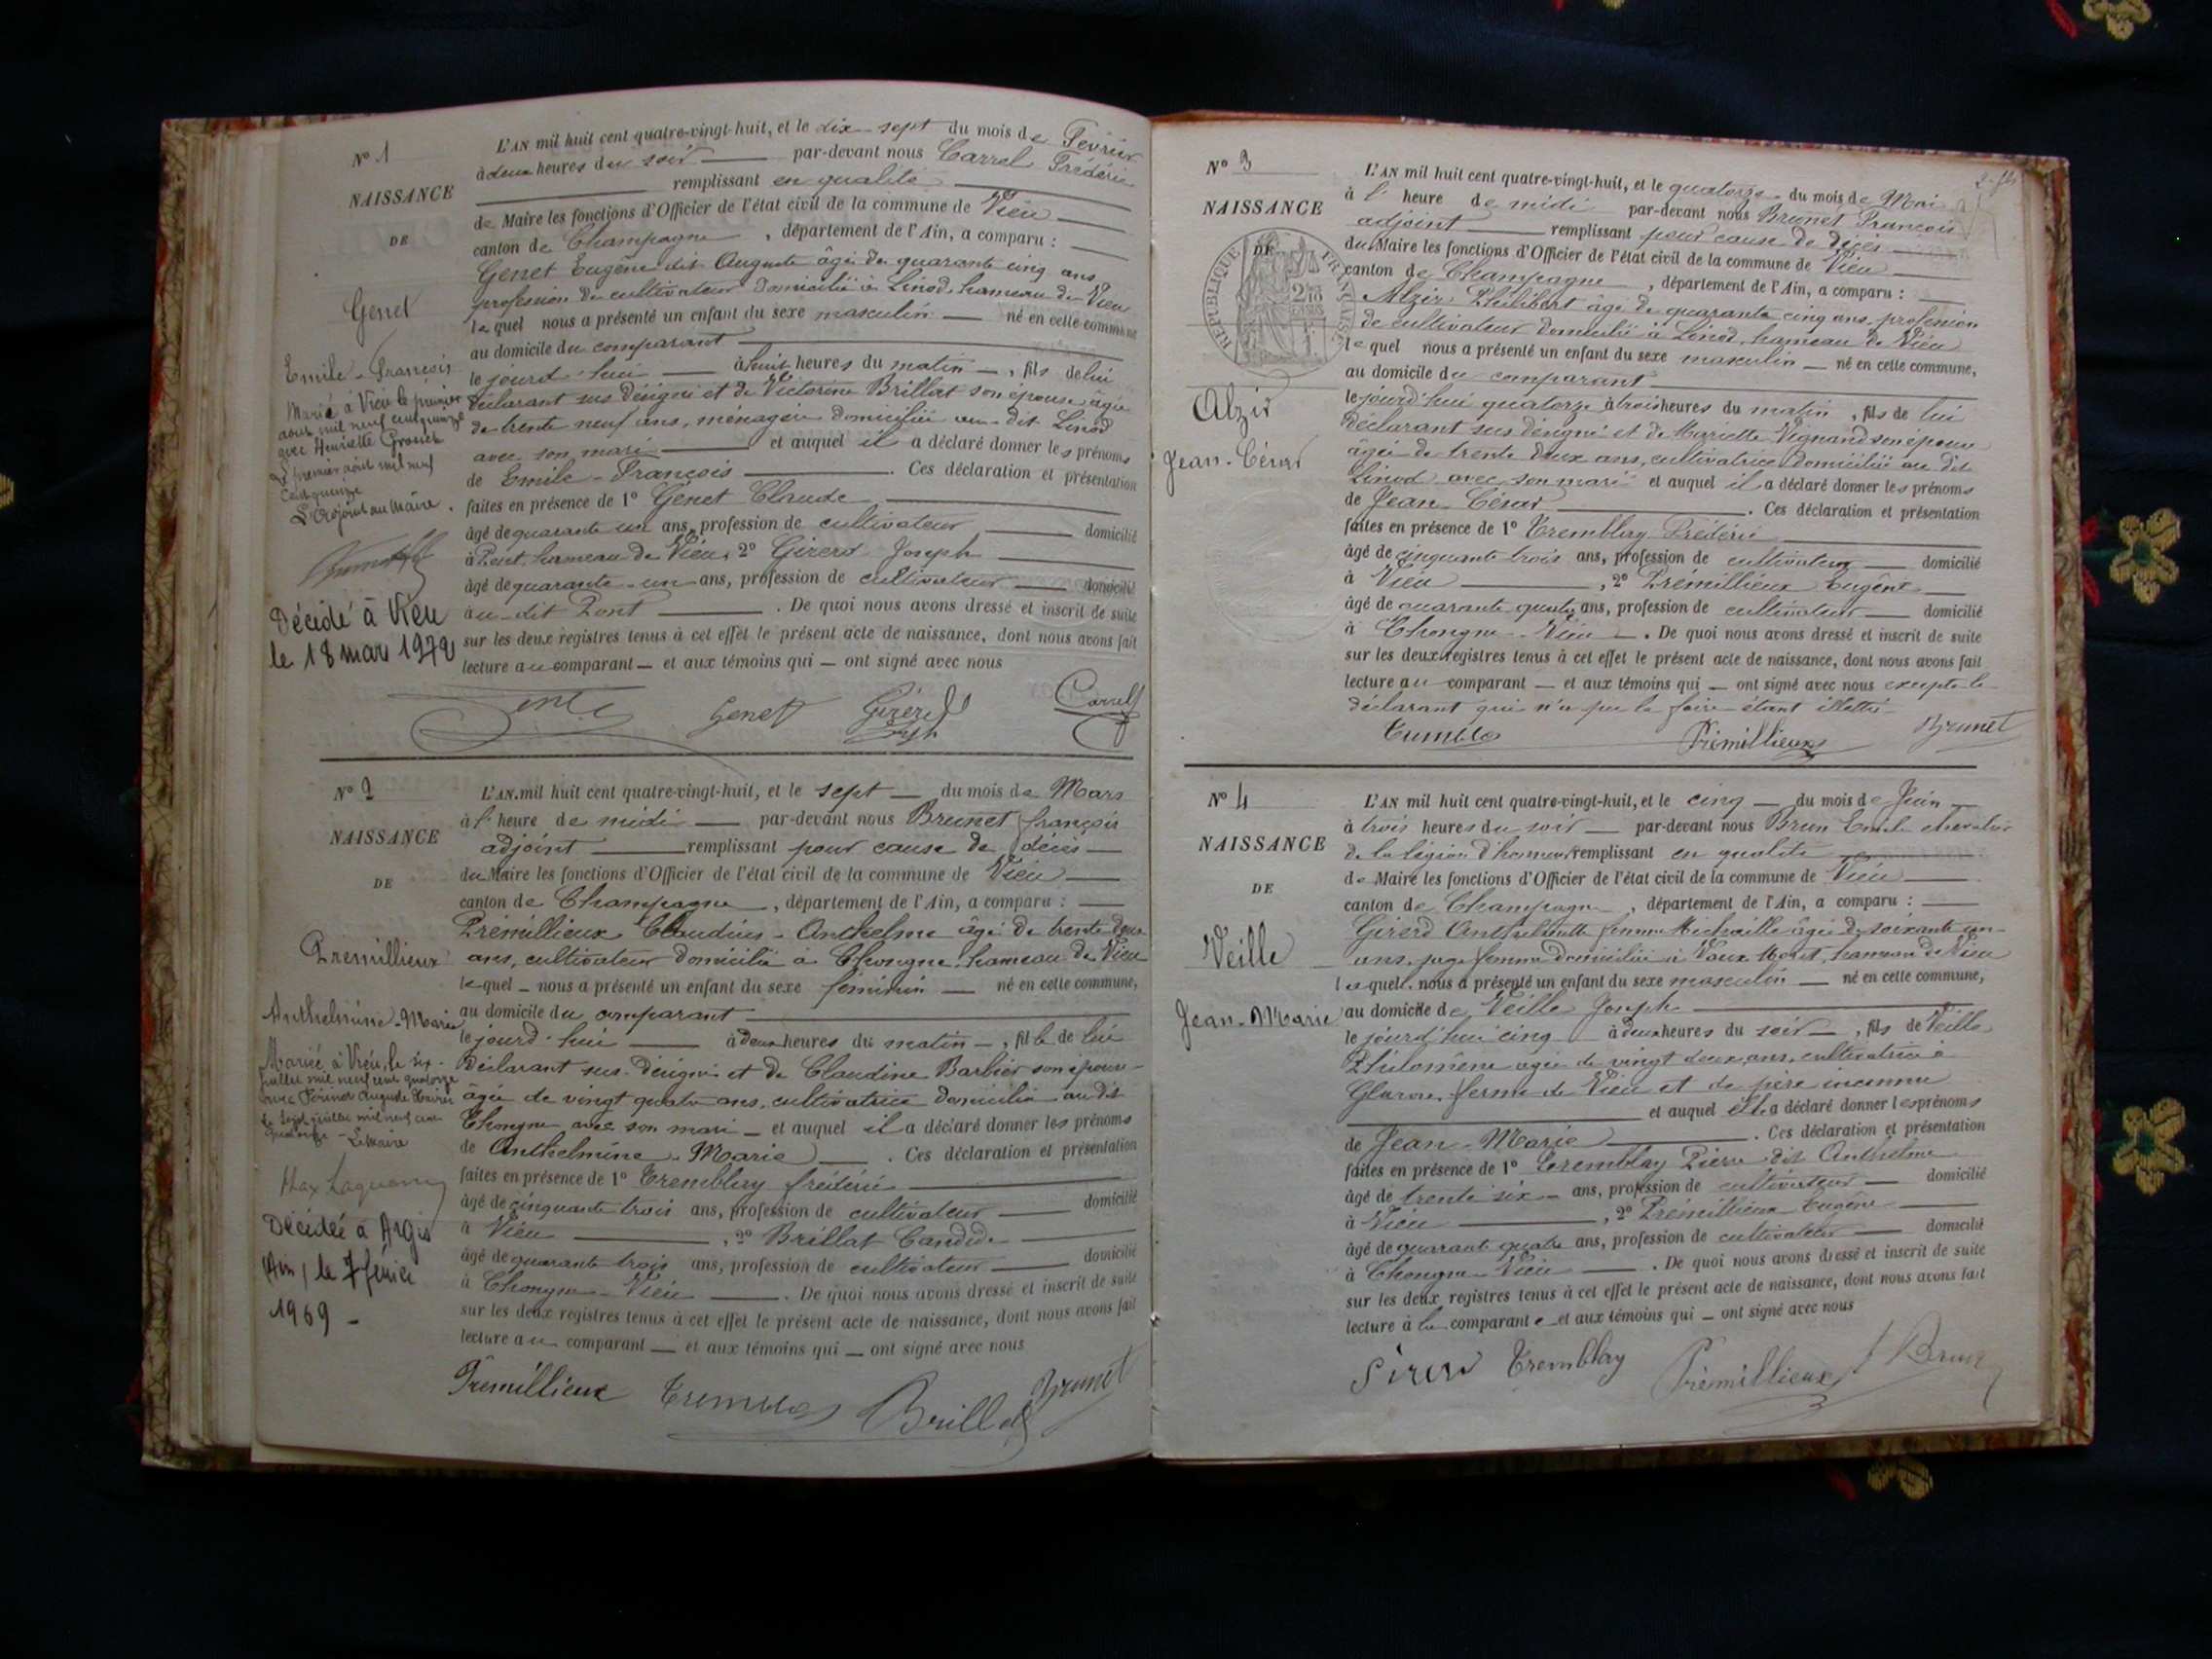 N° 1
NAISSANCE
DE
Genet
Emile-François
Marié à Vieu le premier
aout mil neuf cent quinze
avec Henriette
Le premier août mil neuf
cent quinze
L'Adjoint au Maire.
Décédé à Vieu
le 18 mars 1972
L'AN mil huit cent quatre-vingt-huit, et le dix-sept du mois de Février
à deux heures du soir par-devant nous Carrel Frédéric
remplissant en qualité
de Maire les fonctions d'Officier de l'état civil de la commune de Vieu
canton de Champagne, département de l'Ain, a comparu :
Genet Eugène dit Auguste âgé de quarante cinq ans
profession de cultivateur domicilié à Linod, hameau de Vieu
lequel nous a présenté un enfant du sexe masculin né en cette commune
au domicile du comparant
le jourd'hui à huit heures du matin, fils de lui
déclarant sus désigné et de Victorine Brillat son épouse âgée
de trente neuf ans, ménagère domiciliée au dit Linod
avec son mari et auquel il a déclaré donner les prénoms
de Emile-François. Ces déclaration et présentation
faites en présence de 1° Genet Claude
âgé de quarante un ans, profession de cultivateur domicilié
à Pont, hameau de Vieu, 2° Girerd Joseph
âgé de quarante-un ans, profession de cultivateur domicilié
au-dit Pont. De quoi nous avons dressé et inscrit de suite
sur les deux registres tenus à cet effet le présent acte de naissance, dont nous avons fait
lecture au comparant et aux témoins qui ont signé avec nous
Genet Girerd Carrel
Joseph
N° 2
NAISSANCE
DE
Prémillieux
Anthelmine-Marie
Mariée à Vieu, le six
juillet mil neuf cent quatorze
avec Perinod Auguste
Le sept juillet mil neuf cent
quatorze - Le Maire
Décédée à Argis
(Ain) le 7 février
1969 -
L'AN mil huit cent quatre-vingt-huit, et le sept du mois de Mars
à l'heure de midi par-devant nous Brunet françois
adjoint remplissant pour cause de décès
du Maire les fonctions d'Officier de l'état civil de la commune de Vieu
canton de Champagne, département de l'Ain, a comparu :
Prémillieux Claudius-Anthelme âgé de trente deux
ans, cultivateur domicilié à Chongne, hameau de Vieu
lequel nous a présenté un enfant du sexe féminin né en cette commune,
au domicile du comparant
le jourd'hui à deux heures du matin, fille de lui
déclarant sus-désigné et de Claudine Barbier son épouse
âgée de vingt quatre ans, cultivatrice domiciliée au dit
Chongne avec son mari et auquel il a déclaré donner les prénoms
de Anthelmine-Marie. Ces déclaration et présentation
faites en présence de 1° Tremblay fréderic
âgé de cinquante trois ans, profession de cultivateur domicilié
à Vieu, 2° Brillat Candide
âgé de quarante trois ans, profession de cultivateur domicilié
à Chongne-Vieu. De quoi nous avons dressé et inscrit de suite
sur les deux registres tenus à cet effet le présent acte de naissance, dont nous avons fait
lecture au comparant et aux témoins qui ont signé avec nous
Prémillieux Brillat Brunet
N° 3
NAISSANCE
DE
RÉPUBLIQUE FRANÇAISE
Alzir
Jean-César
L'AN mil huit cent quatre-vingt-huit, et le quatorze du mois de Mai
à l'heure de midi par-devant nous Brunet Francois
adjoint remplissant pour cause de décès
du Maire les fonctions d'Officier de l'état civil de la commune de Vieu
canton de Champagne, département de l'Ain, a comparu :
Alzir Philibert âgé de quarante cinq ans, profession
de cultivateur domicilié à Linod, hameau de Vieu
lequel nous a présenté un enfant du sexe masculin né en cette commune,
au domicile du comparant
le jourd'hui quatorze à trois heures du matin, fils de lui
déclarant sus désigné et de Mariette Vignand son épouse
âgée de trente deux ans, cultivatrice domiciliée au dit
Linod avec son mari et auquel il a déclaré donner les prénoms
de Jean-César. Ces déclaration et présentation
faites en présence de 1° Tremblay Frédéric
âgé de cinquante trois ans, profession de cultivateur domicilié
à Vieu, 2° Prémillieux Eugène
âgé de quarante quatre ans, profession de cultivateur domicilié
à Chongne-Vieu. De quoi nous avons dressé et inscrit de suite
sur les deux registres tenus à cet effet le présent acte de naissance, dont nous avons fait
lecture au comparant et aux témoins qui ont signé avec nous excepté le
déclarant qui n'a pu le faire étant illettré
Prémillieux Brunet
N° 4
NAISSANCE
DE
Veille
Jean-Marie
L'AN mil huit cent quatre-vingt-huit, et le cinq du mois de Juin
à trois heures du soir par-devant nous Brun Emile chevalier
de la légion d'honneur remplissant en qualité
de Maire les fonctions d'Officier de l'état civil de la commune de Vieu
canton de Champagne, département de l'Ain, a comparu :
Girerd femme Michaille âgée de soixante un
ans, sage femme domiciliée à Vaux Moret, hameau de Vieu
laquelle nous a présenté un enfant du sexe masculin né en cette commune,
au domicile de Veille Joseph
le jourd'hui cinq à deux heures du soir, fils de Veille
Philomène agée de vingt deux ans, cultivatrice à
ferme de Vieu et de père inconnu
et auquel elle a déclaré donner les prénoms
de Jean-Marie. Ces déclaration et présentation
faites en présence de 1° Tremblay Pierre dit Anthelme
âgé de trente six ans, profession de cultivateur domicilié
à Vieu, 2° Prémillieux Eugène
âgé de quarante quatre ans, profession de cultivateur domicilié
à Chongne-Vieu. De quoi nous avons dressé et inscrit de suite
sur les deux registres tenus à cet effet le présent acte de naissance, dont nous avons fait
lecture à la comparante et aux témoins qui ont signé avec nous
Girerd Tremblay Prémillieux Brun